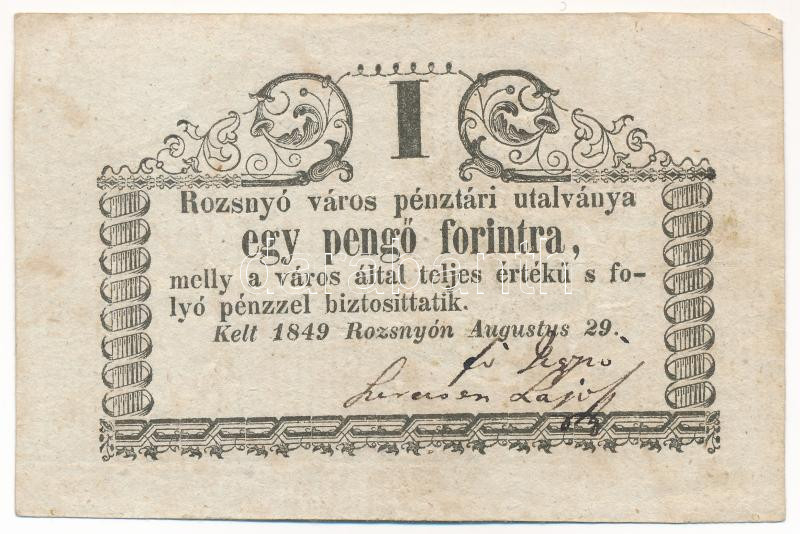 I
Rozsnyó város pénztári utalványa
egy pengő forintra,
melly a város által teljes értékű s fo-
lyó pénzzel biztosittatik.
Kelt 1849 Rozsnyón Augustus 29.
Lajos